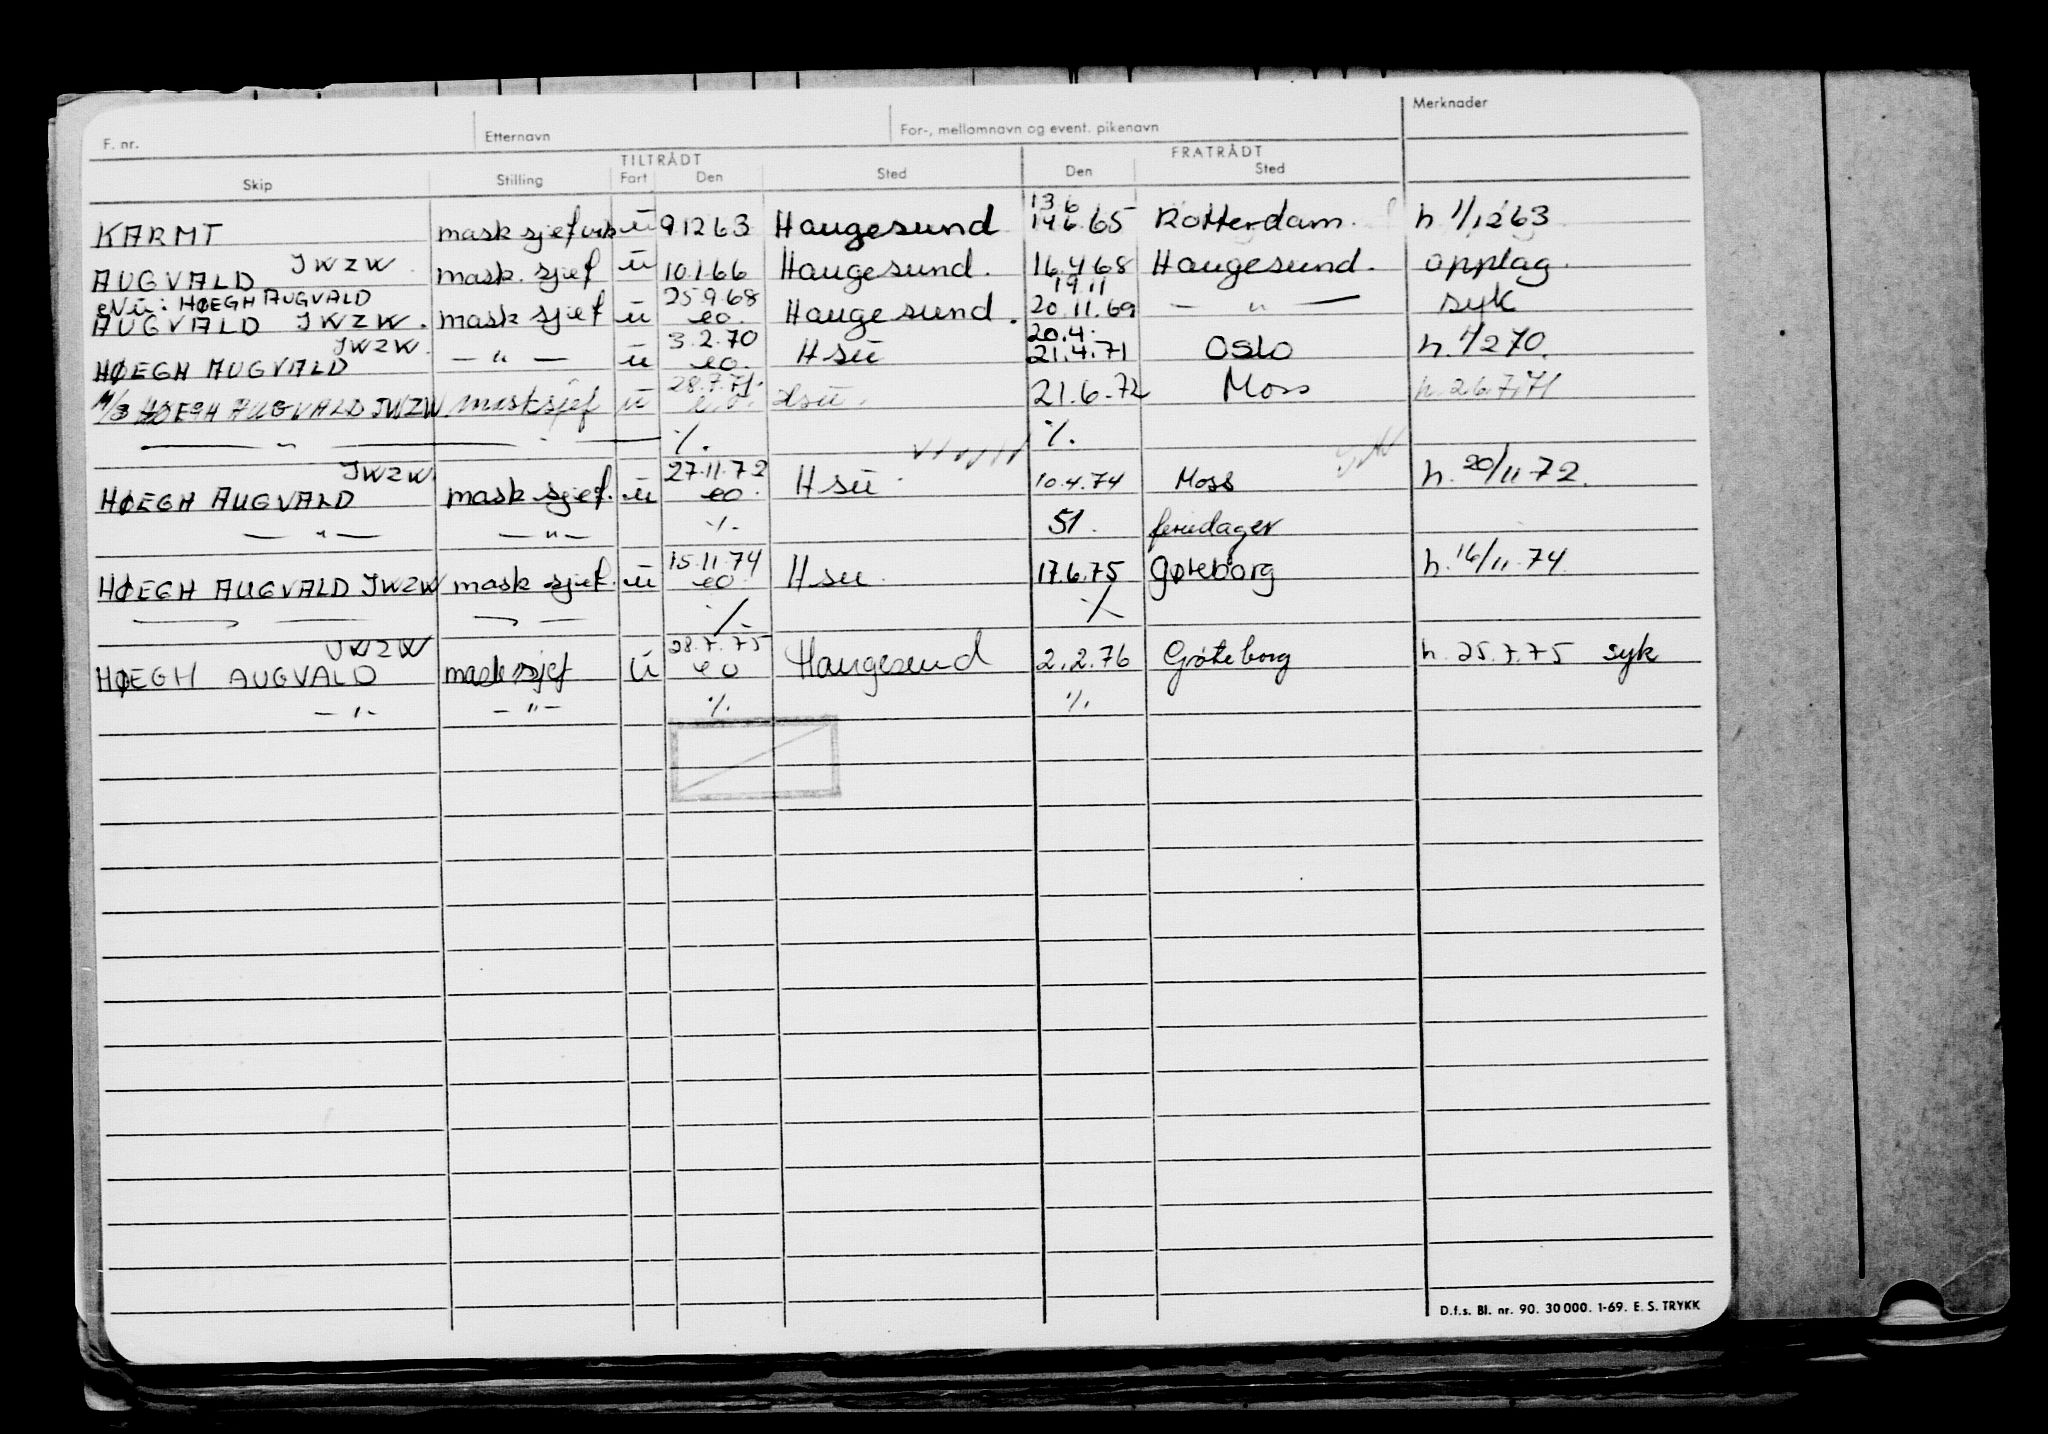 F. nr. Etternavn For-, mellomnavn og event. pikenavn Merknader
TILTRÅDT FRATRÅDT
Skip Stilling Fart Den Sted Den Sted
13.6
KARMT mask sjef vik u 9.12 63 Haugesund 14.6.65 Rotterdam. h 1/12 63
JWZW
AUGVALD mask. sjef u 10.1.66 Haugesund. 16.4.68 Haugesund. opplag.
eVu: HØEGH AUGVALD 25.9.68 19.11
AUGVALD JWZW. mask sjef u eo. Haugesund. 20.11.69 — " — syk
JWZW. 3.2.70 20.4.
HØEGH AUGVALD — " — u eo. Hsu 21.4.71 Oslo h. 1/2 70.
28.7.71.
M/S HØEGH AUGVALD JWZW mask sjef u e.o. Hsu. 21.6.72 Moss h. 26.7.71
— " — — " — ./. ./.
JWZW. 27.11.72
HØEGH AUGVALD mask sjef. u eo. Hsu. 10.4.74 Moss h. 20/11 72.
— " — — " — ./. 51. feriedager
15.11.74
HØEGH AUGVALD JWZW mask sjef. u eo. Hsu. 17.6.75 Gøteborg h. 14/11.74.
./. ./.
JWZW 28.7.75
HØEGH AUGVALD mask sjef u eo Haugesund 2.2.76 Gøteborg h. 25.7.75 syk
— " — — " — ./. ./.
D.f.s. Bl. nr. 90. 30 000. 1-69. E. S. TRYKK